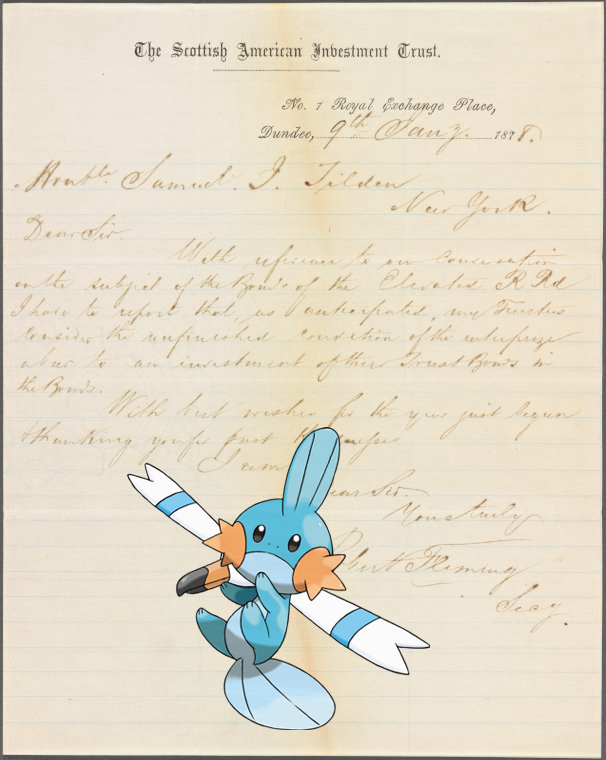 The Scottish American Investment Trust.
No. 1 Royal Exchange Place,
Dundee, 9th Jany. 1878.
Honble. Samuel. J. Tilden
New York.
Dear Sir.
With reference to our Conversation
on the subject of the Bonds of the Elevated R Rd
I have to report that, as anticipated, my Trustees
Consider the unfinished condition of the enterprize
a bar to an investment of their Trust Bonds in
the Bonds.
With best wishes for the year just begun
& thanking you for past
I am
Dear Sir.
Yours truly
Robert Fleming
Secy.